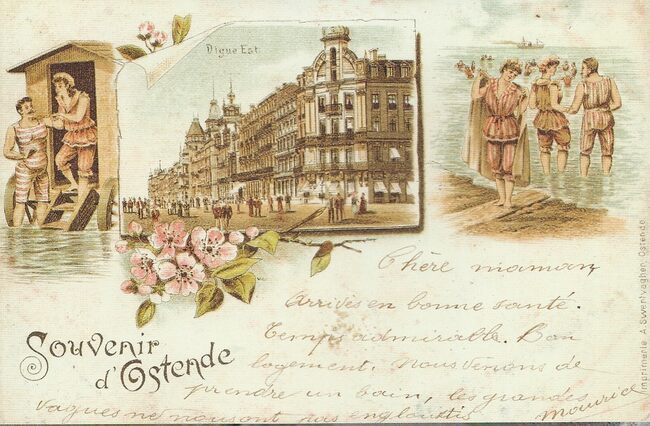 Digue Est.
Chère maman,
Arrivés en bonne santé.
Temps admirable. Bon
logement. Nous venons de
prendre un bain, les grandes
vagues ne nous ont pas engloutis
Maurice
Souvenir
d'Ostende
Imprimerie A. Swertvaegher, Ostende.